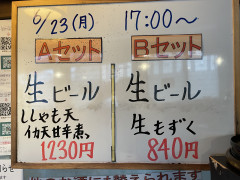 6/23(月) 17:00〜
Aセット
生ビール
ししゃも天
イカ天甘辛煮
1230円
Bセット
生ビール
生もずく
840円